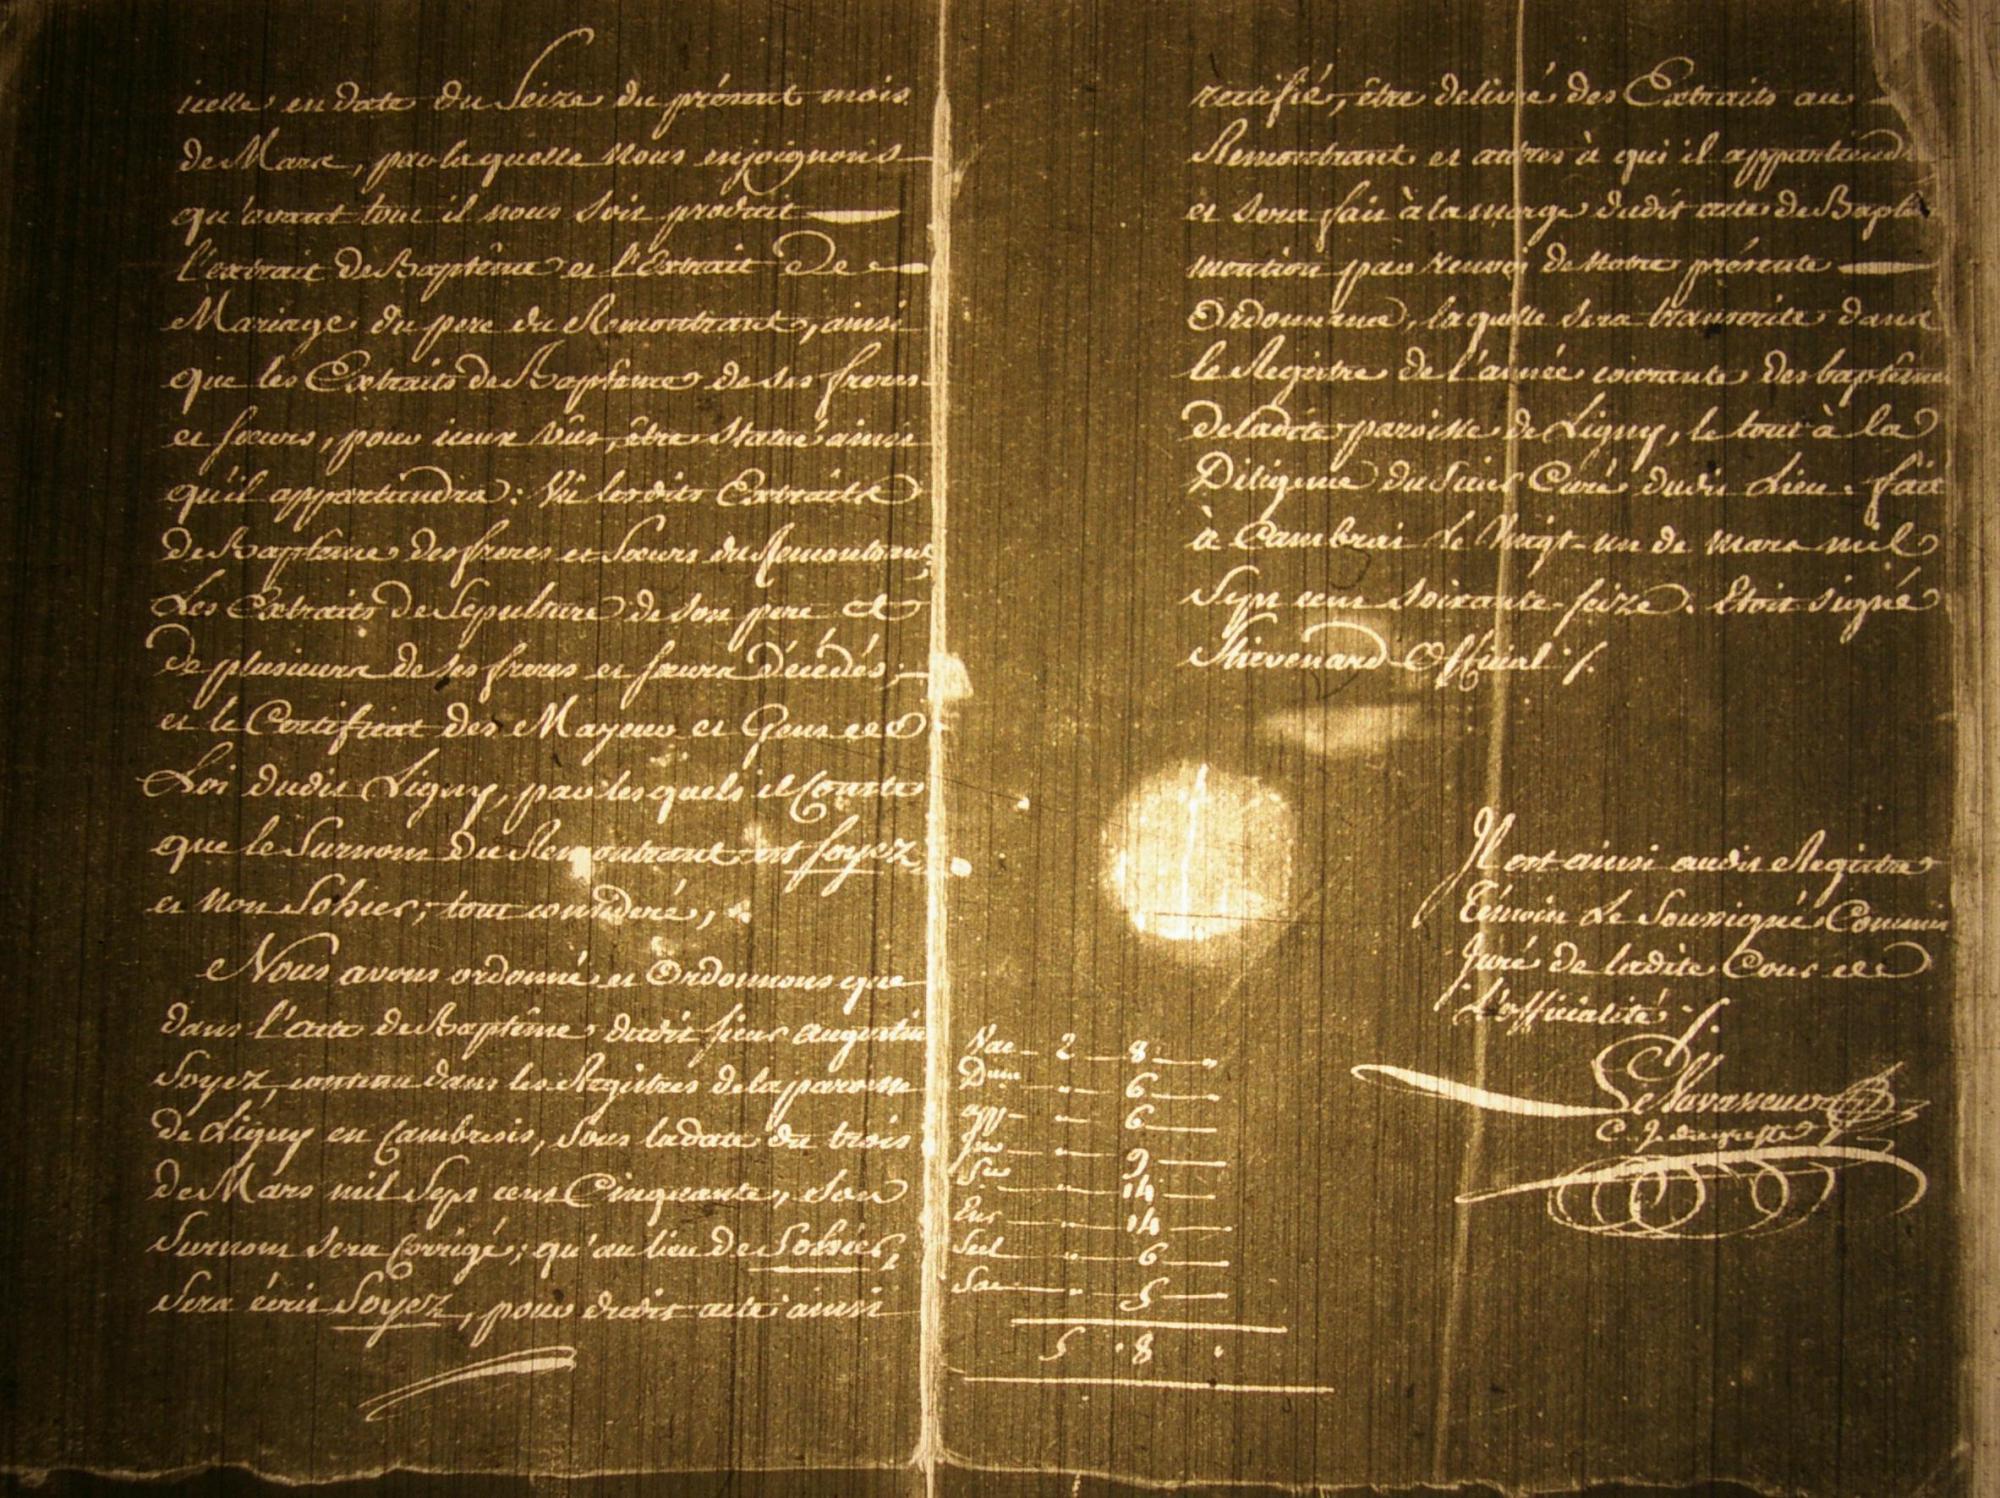 icelle en date du Seize du présent mois
de Mars, par laquelle nous enjoignons
qu'avant tout il nous soit produit
l'extrait de Baptême et l'Extrait de
Mariage du pere du Remontrant, ainsi
que les Extraits de Baptême de ses freres
et soeurs, pour iceux vûs, être statué ainsi
qu'il appartiendra : Vû lesdits Extraits
de Baptême des freres et Soeurs du Remontrant,
Les Extraits de Sepulture de son pere et
de plusieurs de ses freres et soeurs décédés ;
et le Certificat des Mayeur et Gens de
Loi dudit Ligny, par lesquels il Conste
que le Surnom du Remontrant est Soyez
et non Sohier ; tout considéré,
Nous avons ordonné et Ordonnons que
dans l'acte de Baptême dudit sieur Augustin
Soyez, contenu dans les Registres de la paroisse
de Ligny en Cambresis, sous la date du trois
de Mars mil Sept cent Cinquante, son
Surnom sera Corrigé ; qu'au lieu de Sohier,
Sera écrit Soyez, pour dudit acte ainsi
rectifié, être delivré des Extraits au
Remontrant et autres à qui il appartiendra
et sera fait à la marge dudit acte de Baptême
mention par renvoi de notre présente
Ordonnance, laquelle sera transcrite dans
le Registre de l'année courante des baptêmes
de ladite paroisse de Ligny, le tout à la
Diligence du Sieur Curé dudit Lieu. fait
à Cambrai le Vingt-un de mars mil
Sept cent soixante-seize. Etoit signé
Thievenard Official /.
Il est ainsi audit Registre
Témoin Le Soussigné Commis
Juré de ladite Cour de
L'officialité /.
Le Vavasseur
C. J. du greffe
Vac 2 8 "
" 6
" 6
" 9
" 14
" 14
" 6
" 5
5 . 8 .